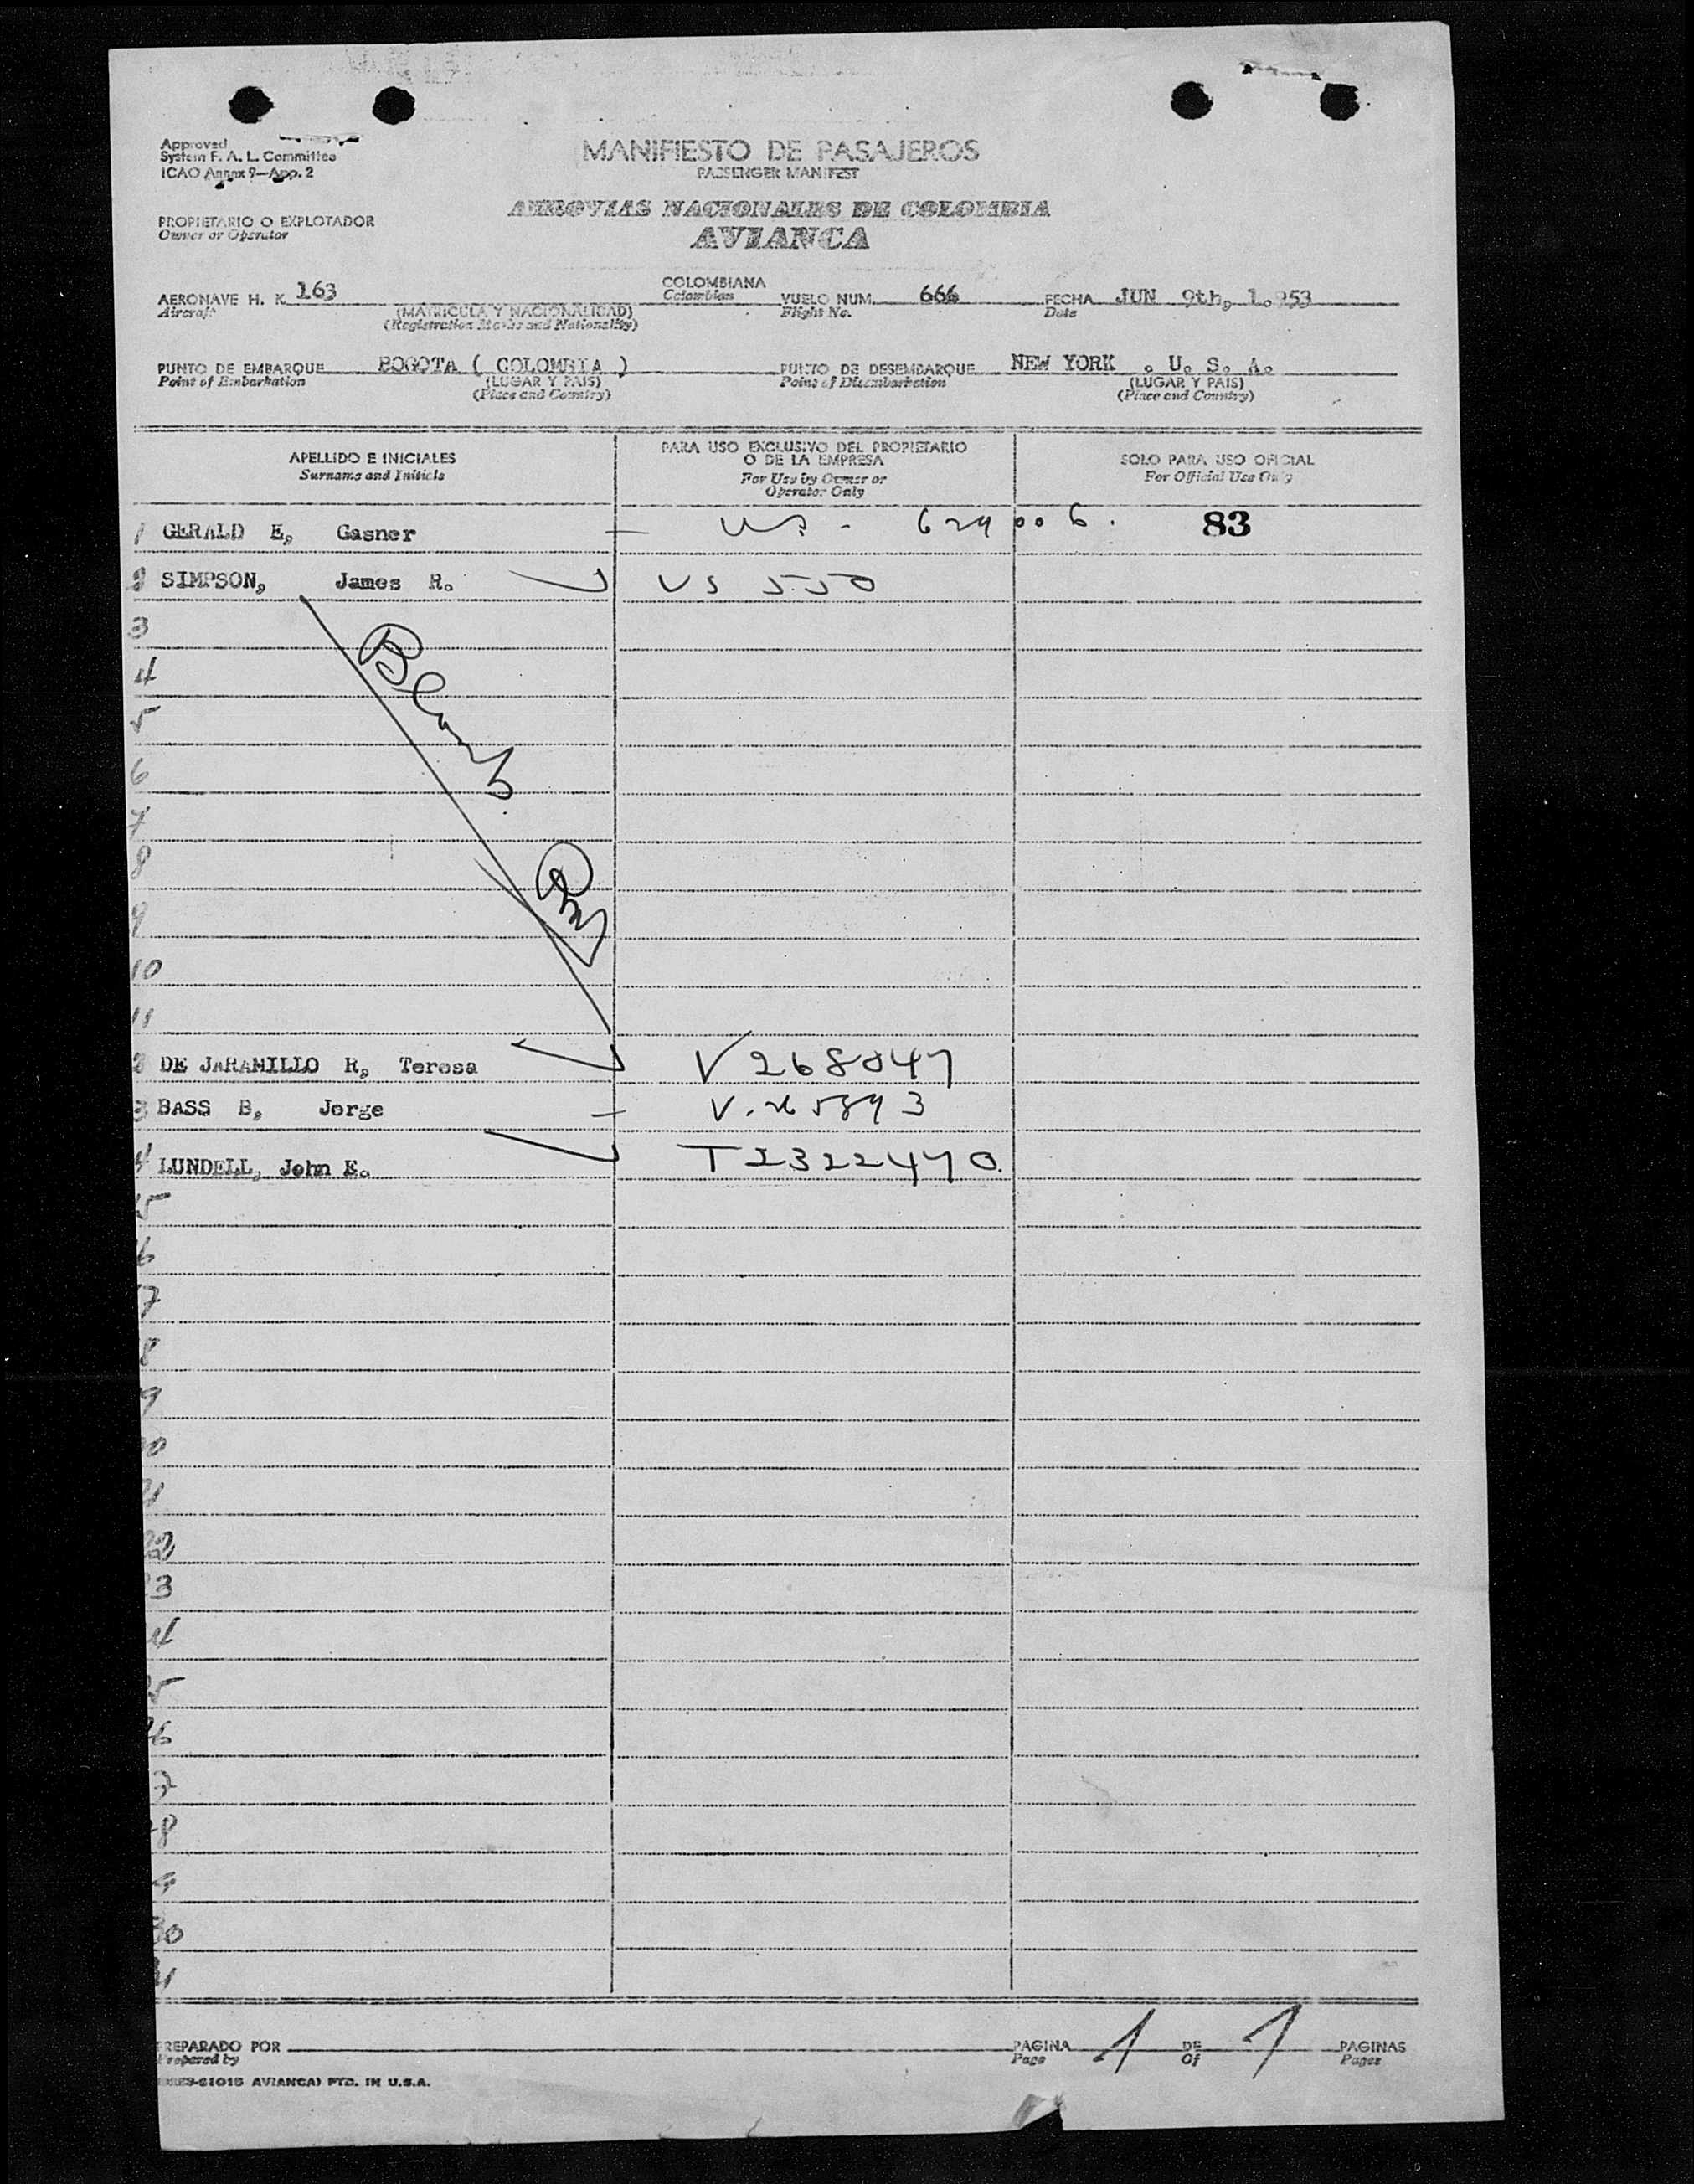 Approved
System F. A. L. Committee
ICAO Annex 9—App. 2
MANIFIESTO DE PASAJEROS
PASSENGER MANIFEST
PROPIETARIO O EXPLOTADOR
Owner or Operator
AEROVIAS NACIONALES DE COLOMBIA
AVIANCA
AERONAVE H. K. 163
Aircraft
(MATRICULA Y NACIONALIDAD)
(Registration Marks and Nationality)
COLOMBIANA
Colombian
VUELO NUM. 666
Flight No.
FECHA JUN 9th, 1.953
Date
PUNTO DE EMBARQUE BOGOTA ( COLOMBIA )
Point of Embarkation
(LUGAR Y PAIS)
(Place and Country)
PUNTO DE DESEMBARQUE NEW YORK . U. S. A.
Point of Disembarkation
(LUGAR Y PAIS)
(Place and Country)
APELLIDO E INICIALES
Surname and Initials
PARA USO EXCLUSIVO DEL PROPIETARIO
O DE LA EMPRESA
For Use by Owner or
Operator Only
SOLO PARA USO OFICIAL
For Official Use Only
1 GERALD E, Gasner — US. - 629006. 83
2 SIMPSON, James R. US 550
3
Blank
4
5
6
7
8
9
10
11
2 DE JARAMILLO R, Teresa V 268047
3 BASS B, Jorge —
4 LUNDELL, John E. T2322470.
5
6
7
8
9
20
21
22
23
4
5
26
7
28
9
30
31
PREPARADO POR
Prepared by
PAGINA 1 DE 1 PAGINAS
Page Of Pages
AVIANCA) PTD. IN U.S.A.